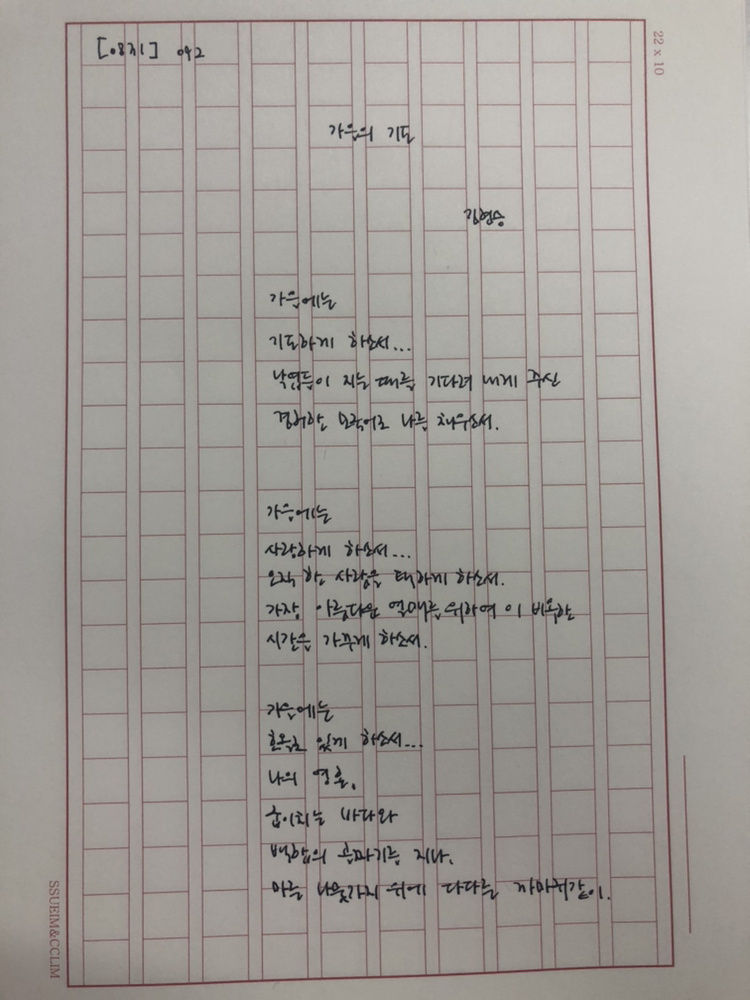 [08치] 042
22 x 10
가을의 기도
김현승
가을에는
기도하게 하소서...
낙엽들이 지는 때를 기다려 내게 주신
겸허한 모국어로 나를 채우소서.
가을에는
사랑하게 하소서...
오직 한 사람을 택하게 하소서.
가장 아름다운 열매를 위하여 이 비옥한
시간을 가꾸게 하소서.
가을에는
호올로 있게 하소서...
나의 영혼,
굽이치는 바다와
백합의 골짜기를 지나,
마른 나뭇가지 위에 다다른 까마귀같이.
SSUEIM&CCLIM